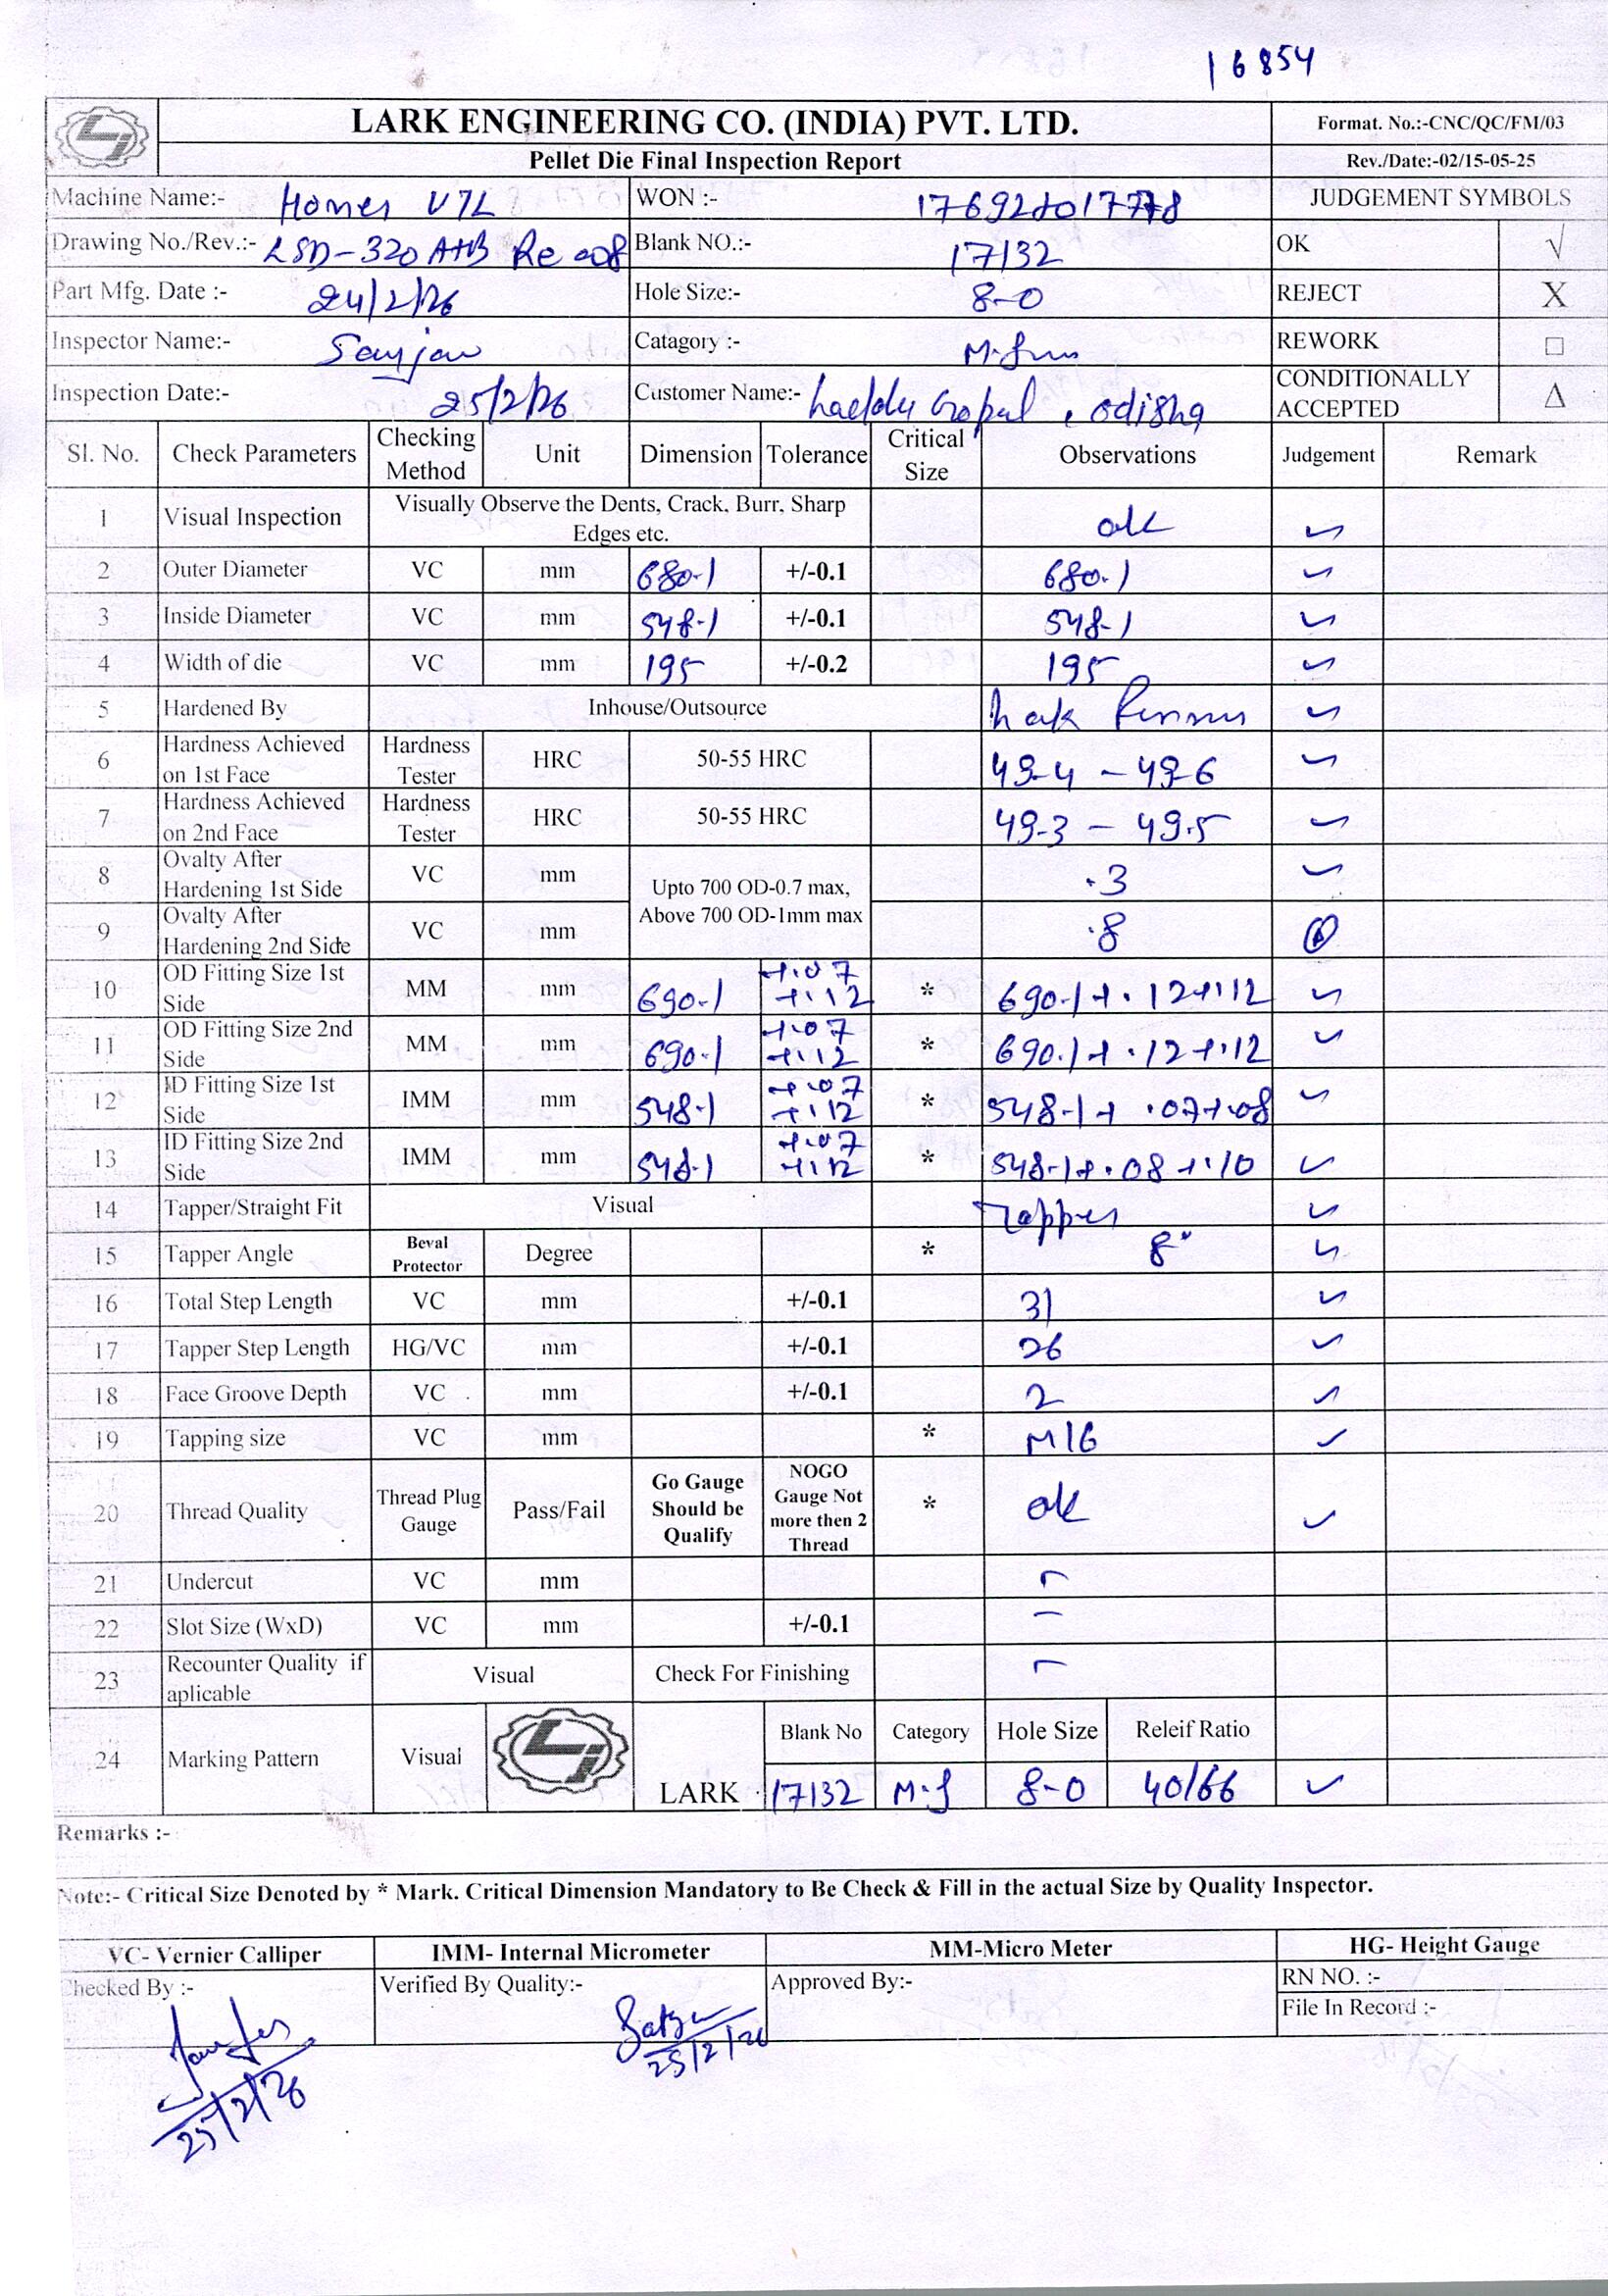 16854
LARK ENGINEERING CO. (INDIA) PVT. LTD. Format. No.:-CNC/QC/FM/03
Pellet Die Final Inspection Report Rev./Date:-02/15-05-25
Machine Name:- V7L WON :- JUDGEMENT SYMBOLS
Drawing No./Rev.:- LSD-320 A+B Blank NO.:- 17132 OK √
Part Mfg. Date :- 24/2/26 Hole Size:- 8-0 REJECT X
Inspector Name:- Catagory :- REWORK □
Inspection Date:- 25/2/26 Customer Name:- Laddu Gopal, odisha CONDITIONALLY ACCEPTED Δ
Sl. No. Check Parameters Checking Method Unit Dimension Tolerance Critical Size Observations Judgement Remark
1 Visual Inspection Visually Observe the Dents, Crack, Burr, Sharp Edges etc. ok ✓
2 Outer Diameter VC mm 680.1 +/-0.1 680.1 ✓
3 Inside Diameter VC mm 548-1 +/-0.1 548-1 ✓
4 Width of die VC mm 195 +/-0.2 195 ✓
5 Hardened By Inhouse/Outsource ✓
6 Hardness Achieved on 1st Face Hardness Tester HRC 50-55 HRC 49-4 - 49-6 ✓
7 Hardness Achieved on 2nd Face Hardness Tester HRC 50-55 HRC 49-3 - 49.5 ✓
8 Ovalty After Hardening 1st Side VC mm Upto 700 OD-0.7 max, Above 700 OD-1mm max .3 ✓
9 Ovalty After Hardening 2nd Side VC mm .8
10 OD Fitting Size 1st Side MM mm 690.1 +.07 +.12 * 690.1+.12+.12 ✓
11 OD Fitting Size 2nd Side MM mm 690.1 +.07 +.12 * 690.1+.12+.12 ✓
12 ID Fitting Size 1st Side IMM mm 548-1 +.07 +.12 * 548-1+.07+.08 ✓
13 ID Fitting Size 2nd Side IMM mm 548.1 +.07 +.12 * 548-1+.08+.10 ✓
14 Tapper/Straight Fit Visual Tapper ✓
15 Tapper Angle Beval Protector Degree * 8° ✓
16 Total Step Length VC mm +/-0.1 31 ✓
17 Tapper Step Length HG/VC mm +/-0.1 26 ✓
18 Face Groove Depth VC mm +/-0.1 2 ✓
19 Tapping size VC mm * M16 ✓
20 Thread Quality Thread Plug Gauge Pass/Fail Go Gauge Should be Qualify NOGO Gauge Not more then 2 Thread * ok ✓
21 Undercut VC mm -
22 Slot Size (WxD) VC mm +/-0.1 -
23 Recounter Quality if aplicable Visual Check For Finishing -
24 Marking Pattern Visual LARK Blank No Category Hole Size Releif Ratio
17132 M.S 8-0 40/66 ✓
Remarks :-
Note:- Critical Size Denoted by * Mark. Critical Dimension Mandatory to Be Check & Fill in the actual Size by Quality Inspector.
VC- Vernier Calliper IMM- Internal Micrometer MM-Micro Meter HG- Height Gauge
Checked By :- Verified By Quality:- Approved By:- RN NO. :-
File In Record :-
25/2/26
25/2/26